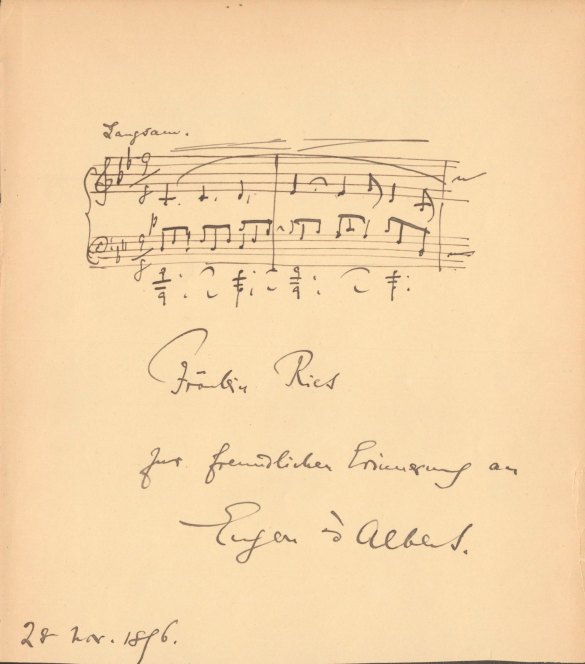 Langsam.
9
8
p
9
8
Fräulein Ries
zur freundlichen Erinnerung an
Eugen d'Albert.
28 Nov. 1896.